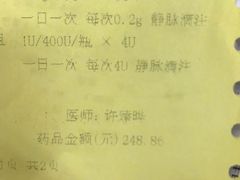 一日一次 每次0.2g 静脉滴注
1U/400U/瓶 × 4U
一日一次 每次4U 静脉滴注
医师: 许
药品金额(元) 248.86
页 共2页